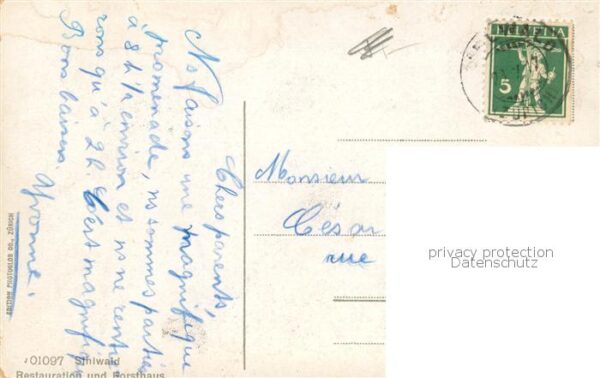 Chers parents,
Ns faisons une magnifique
promenade, ns sommes partis
à 8h ½ environ et ns ne rentre
rons qu'à 2h. C'est magnifique
Bons baisers.
Yvonne.
Monsieur
César
rue
HELVETIA
5
privacy protection
Datenschutz
EDITION PHOTOGLOB CO., ZÜRICH
01097 Sihlwald
Restauration und Forsthaus